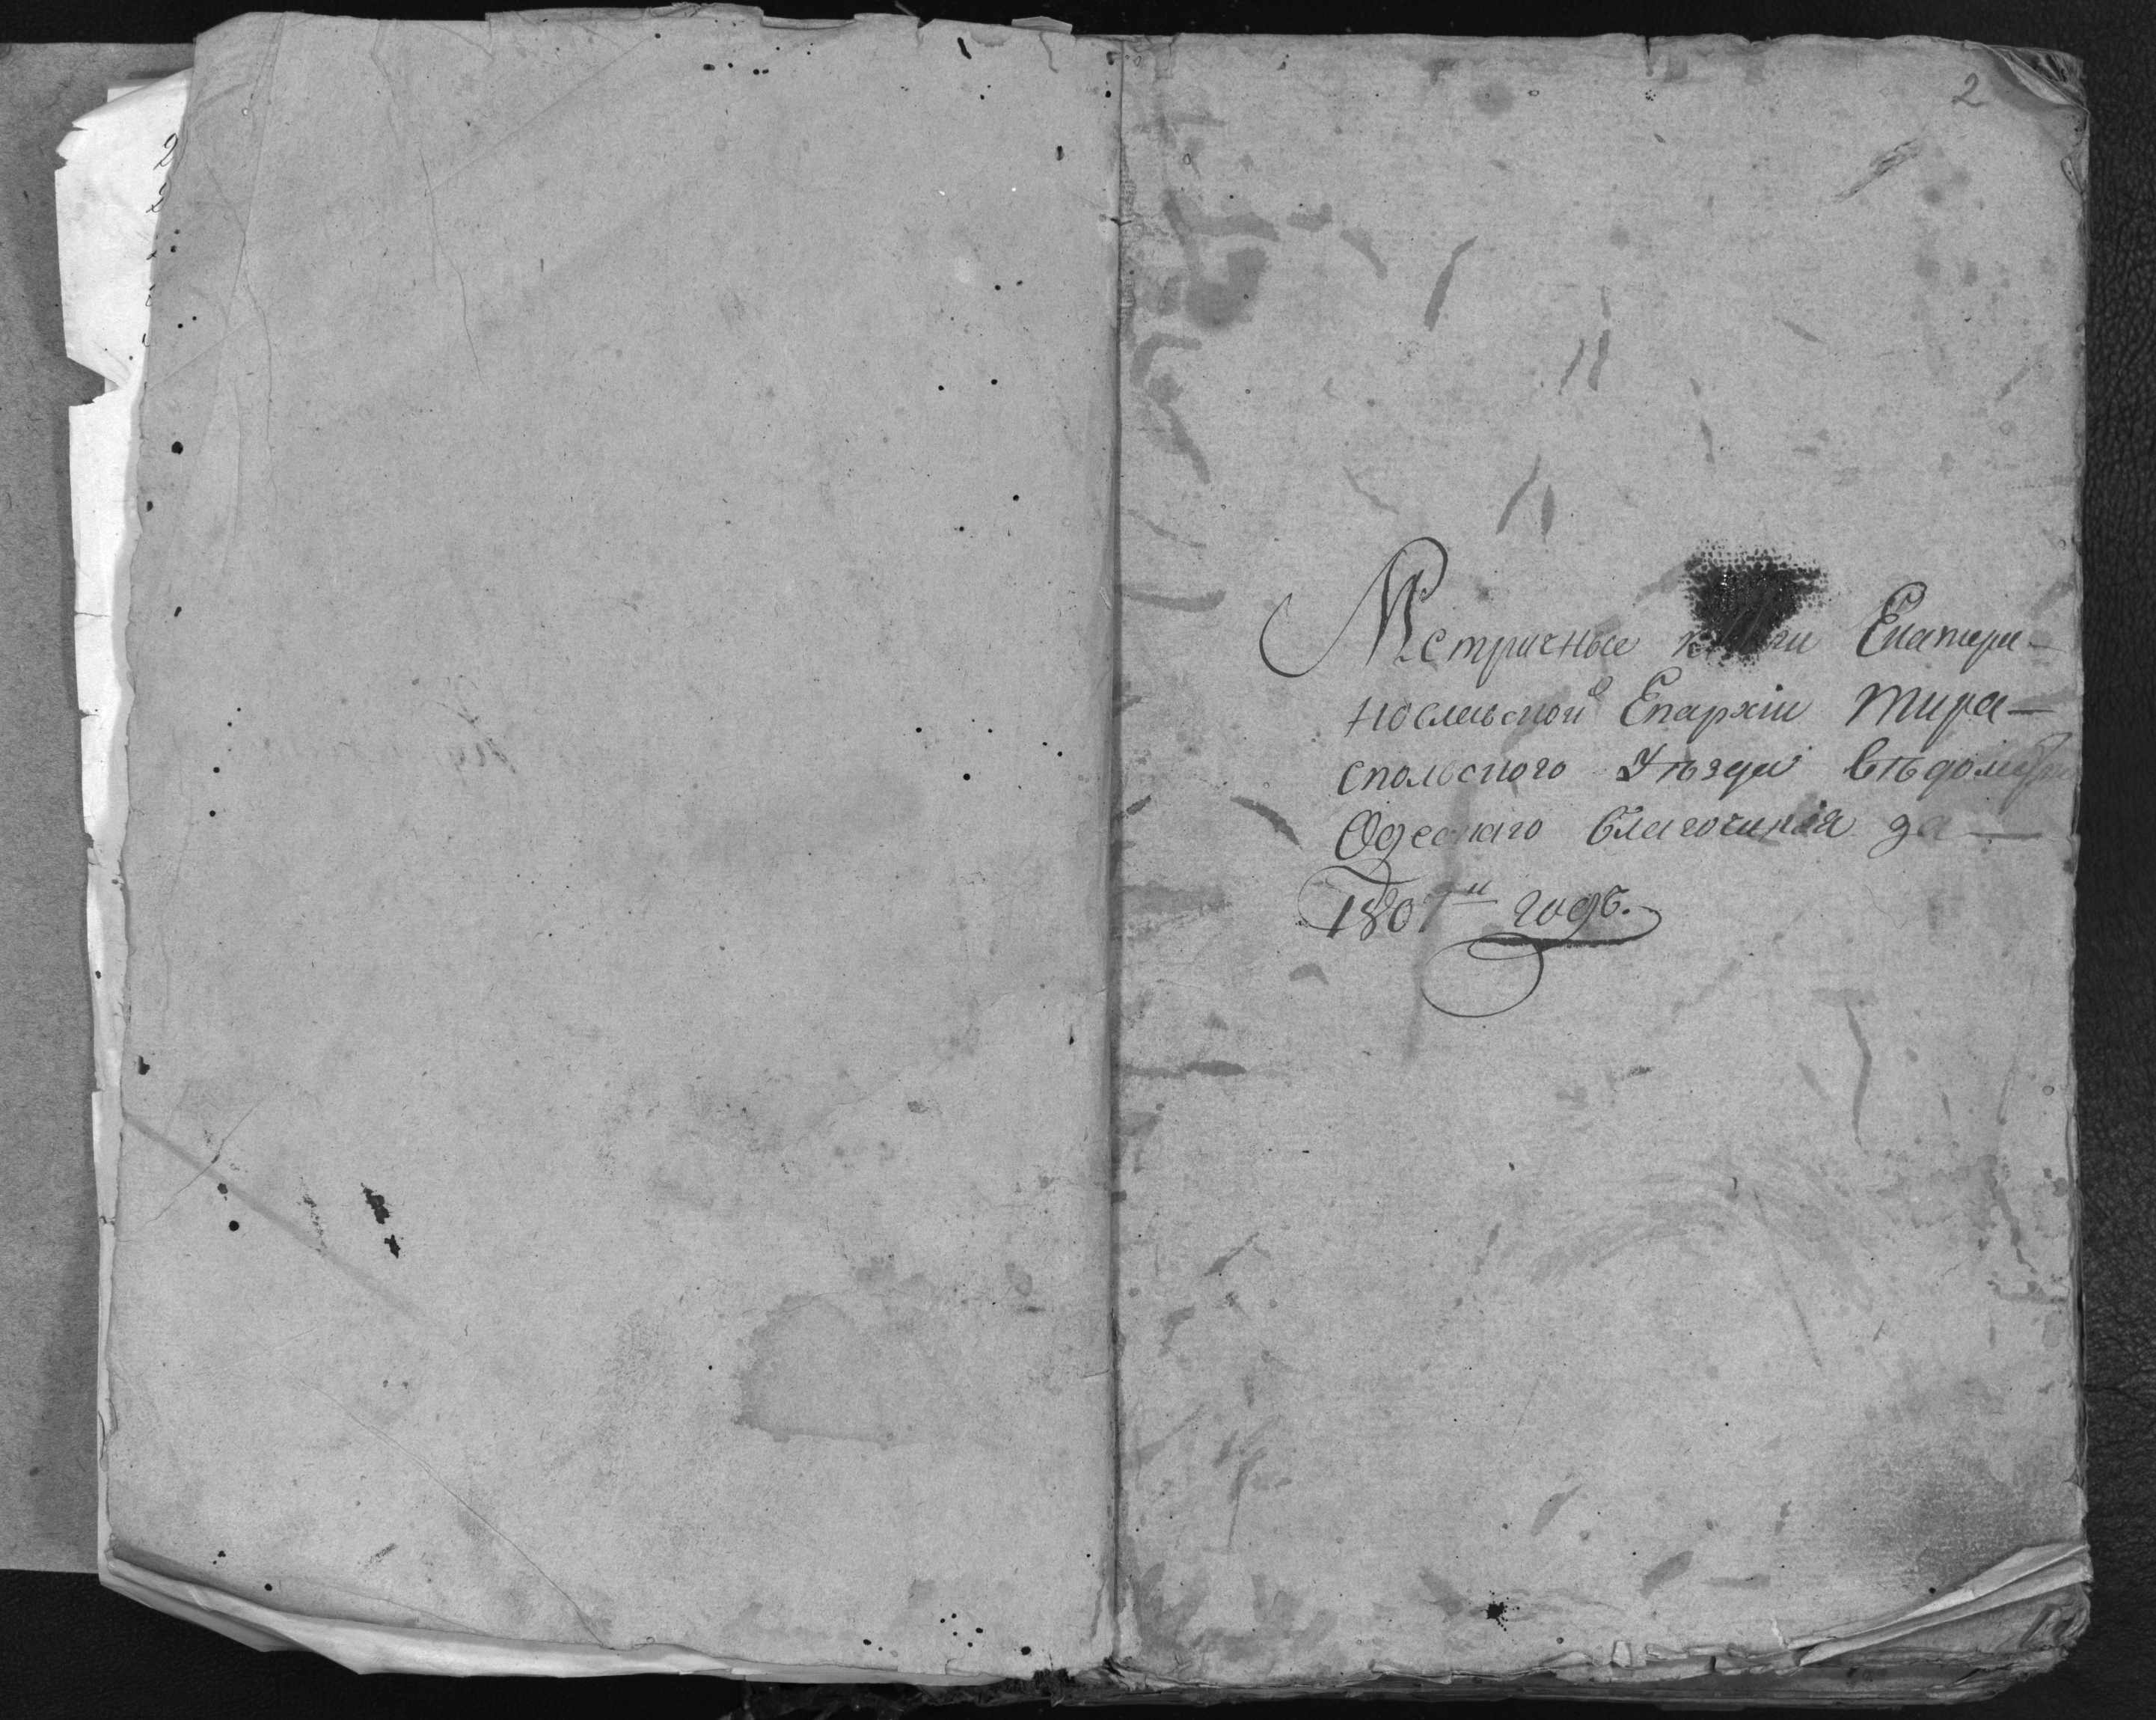 2
Метричные книги Екатери-
нославской Епархіи Тира-
спольского Уѣзда вѣдомства
Одесскаго благочинія за
1807й годъ.